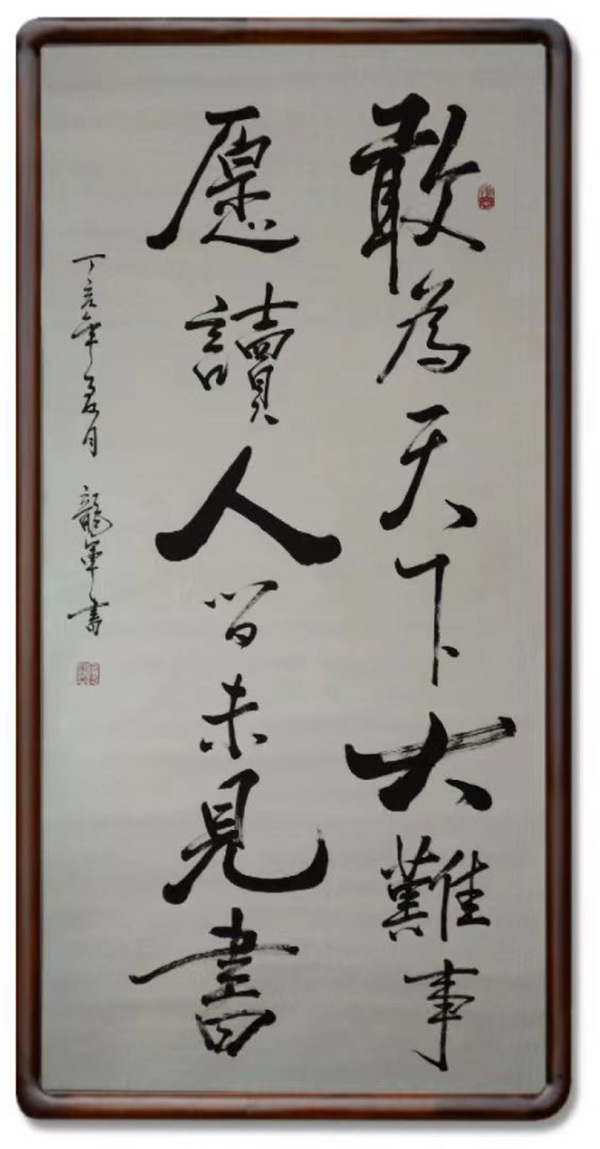 敢為天下大難事
愿讀人皆未見書
丁亥年夏月 龍軍書